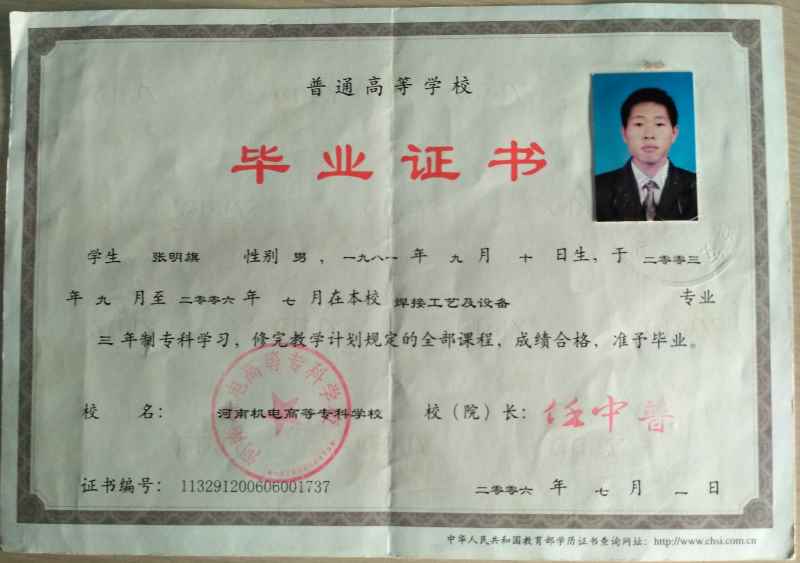 普通高等学校
毕业证书
学生 张明旗 性别 男 , 一九八一 年 九 月 十 日生, 于 二零零三
年 九 月至 二零零六 年 七 月在本校 焊接工艺及设备 专业
三 年制专科学习, 修完教学计划规定的全部课程, 成绩合格, 准予毕业。
校 名: 河南机电高等专科学校 校（院）长: 任中普
河南机电高等专科学校
证书编号: 113291200606001737 二零零六 年 七 月 一 日
中华人民共和国教育部学历证书查询网址: http://www.chsi.com.cn